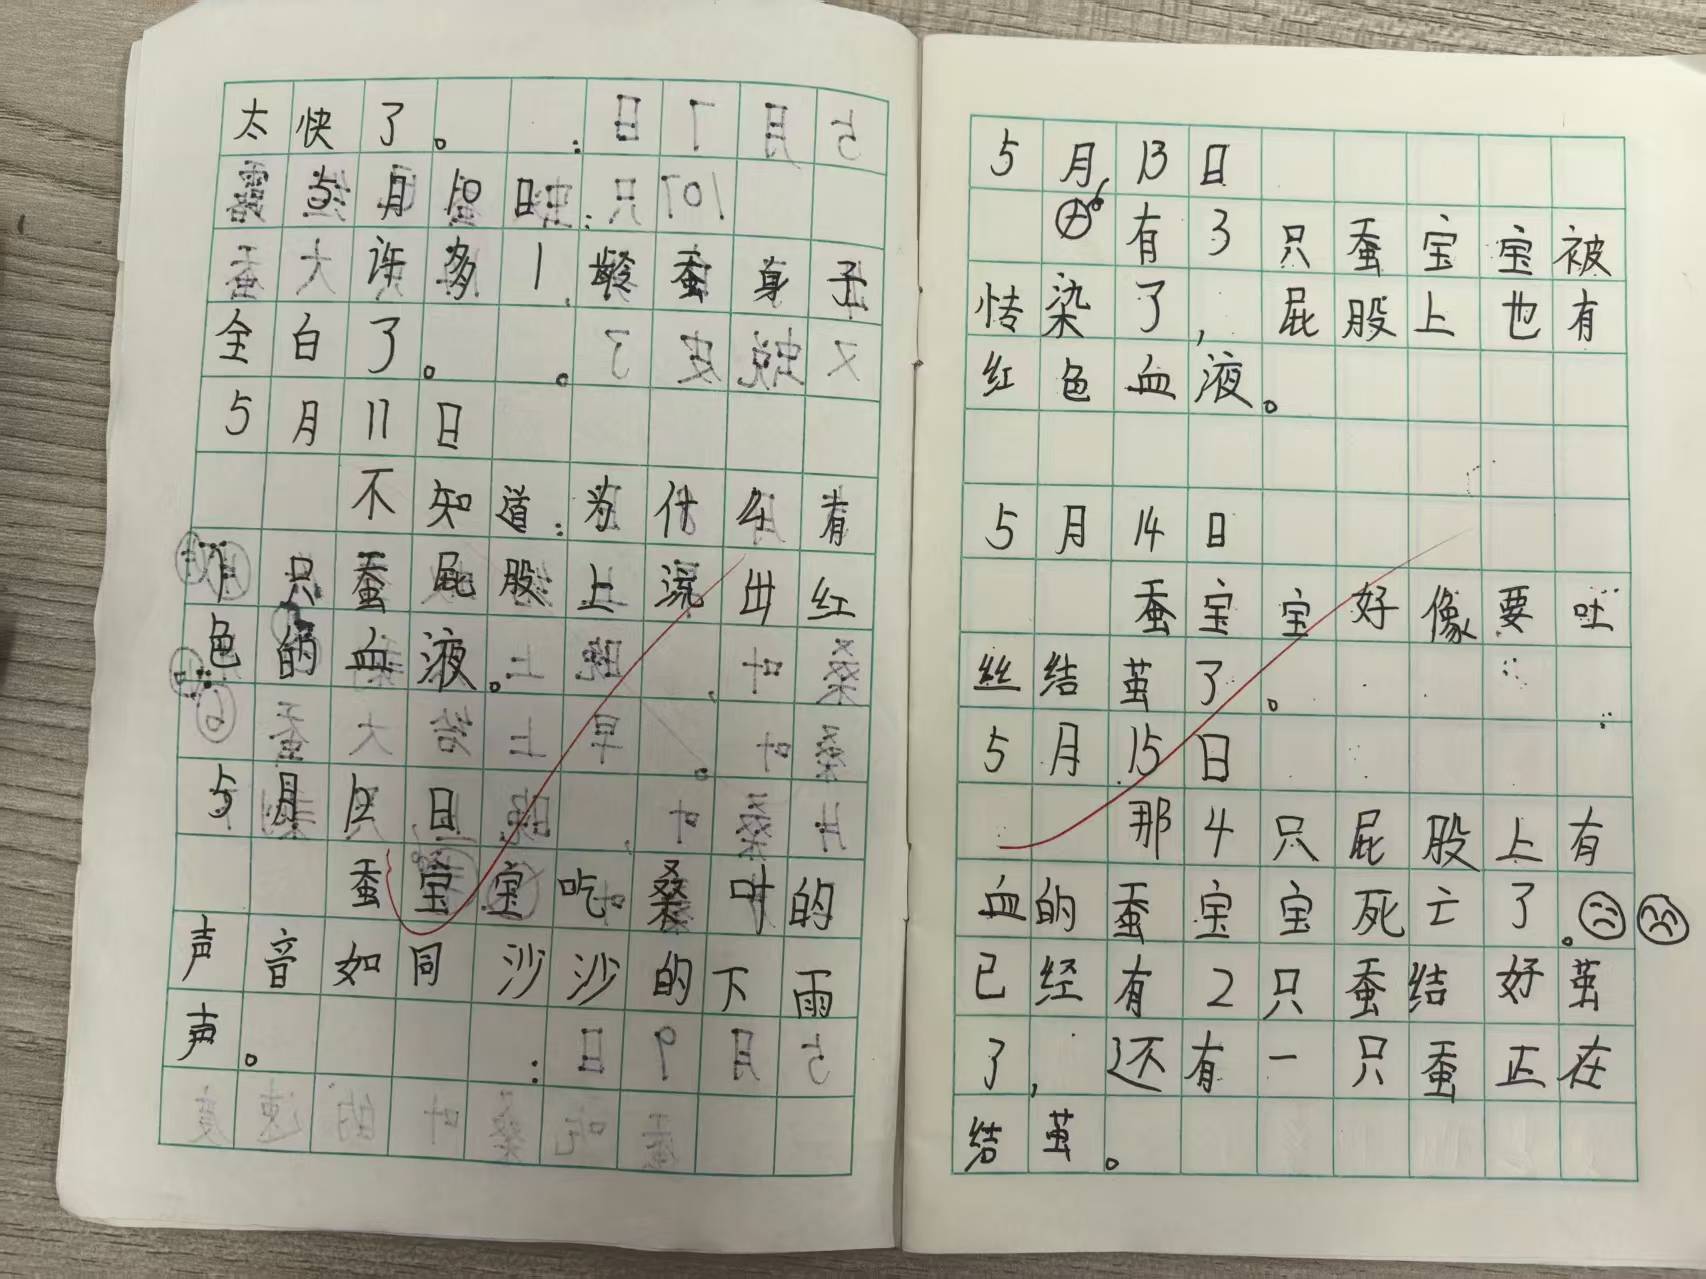 太快了。
5月10日
许多1龄蚕身子
全白了。
5月11日
不知道为什么有
1只蚕屁股上流出红
色的血液。
5月12日
蚕宝宝吃桑叶的
声音如同沙沙的下雨
声。
5月13日
有3只蚕宝宝被
染了，屁股上也有
红色血液。
5月14日
蚕宝宝好像要吐
丝结茧了。
5月15日
那4只屁股上有
血的蚕宝宝死亡了。
已经有2只蚕结好茧
了，还有一只蚕正在
结茧。